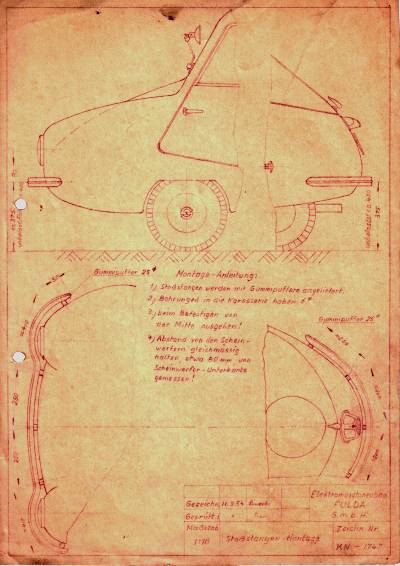 Gummipuffer 25 ⌀
Montage-Anleitung:
1) Stoßstangen werden mit Gummipuffern angeliefert.
2) Bohrungen in die Karosserie haben 6 ⌀
3) beim Befestigen von
der Mitte ausgehen!
4) Abstand von den Schein-
werfern gleichmässig
halten, etwa 80 mm von
Scheinwerfer-Unterkante
gemessen!
Gummipuffer 25 ⌀
250
Gezeichn.
Geprüft:
Maßstab
1:10
Stoßstangen-Montage
Elektromaschinenbau
FULDA
G.m.b.H.
Zeichn. Nr.
KN. - 174